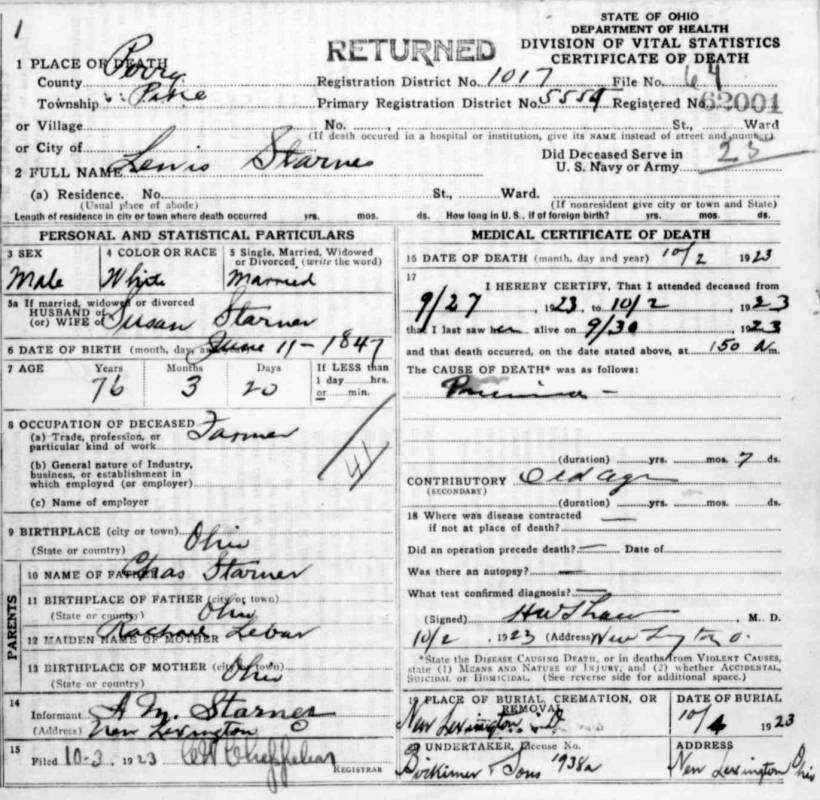 1
STATE OF OHIO
DEPARTMENT OF HEALTH
RETURNED
DIVISION OF VITAL STATISTICS
CERTIFICATE OF DEATH
1 PLACE OF DEATH
County Perry Registration District No. 1017 File No. 64
Township Pike Primary Registration District No. 5559 Registered No. 62001
or Village No. , St., Ward
(If death occured in a hospital or institution, give its NAME instead of street and number)
or City of
2 FULL NAME Lewis Starner
Did Deceased Serve in
U. S. Navy or Army
23
(a) Residence. No. St., Ward.
(Usual place of abode) (If nonresident give city or town and State)
Length of residence in city or town where death occurred yrs. mos. ds. How long in U. S., if of foreign birth? yrs. mos. ds.
PERSONAL AND STATISTICAL PARTICULARS
3 SEX 4 COLOR OR RACE 5 Single, Married, Widowed
or Divorced (write the word)
Male White Married
5a If married, widowed or divorced
HUSBAND of
(or) WIFE of Susan Starner
6 DATE OF BIRTH (month, day, and year) June 11 - 1847
7 AGE Years Months Days If LESS than
1 day hrs.
or min.
76 3 20
8 OCCUPATION OF DECEASED
(a) Trade, profession, or
particular kind of work Farmer
(b) General nature of Industry,
business, or establishment in
which employed (or employer)
(c) Name of employer
41
9 BIRTHPLACE (city or town)
(State or country) Ohio
PARENTS
10 NAME OF FATHER Chas Starner
11 BIRTHPLACE OF FATHER (city or town)
(State or country) Ohio
12 MAIDEN NAME OF MOTHER Rachael Lebar
13 BIRTHPLACE OF MOTHER (city or town)
(State or country) Ohio
14
Informant A M. Starner
(Address) New Lexington O
15
Filed 10-3, 1923
REGISTRAR
MEDICAL CERTIFICATE OF DEATH
16 DATE OF DEATH (month, day and year) 10/2 1923
17
I HEREBY CERTIFY, That I attended deceased from
9/27, 1923, to 10/2, 1923
that I last saw him alive on 9/30, 1923
and that death occurred, on the date stated above, at 150 A m.
The CAUSE OF DEATH* was as follows:
(duration) yrs. mos. 7 ds.
CONTRIBUTORY Old Age
(SECONDARY)
(duration) yrs. mos. ds.
18 Where was disease contracted
if not at place of death? —
Did an operation precede death? — Date of
Was there an autopsy? —
What test confirmed diagnosis? —
(Signed) H W Shaw M. D.
10/2, 1923 (Address) New Lexington O.
*State the DISEASE CAUSING DEATH, or in deaths from VIOLENT CAUSES,
state (1) MEANS AND NATURE OF INJURY, and (2) whether ACCIDENTAL,
SUICIDAL or HOMICIDAL. (See reverse side for additional space.)
19 PLACE OF BURIAL, CREMATION, OR
REMOVAL
New Lexington O
DATE OF BURIAL
10/4 1923
20 UNDERTAKER, License No.
Birkimer & Sons 1938a
ADDRESS
New Lexington Ohio